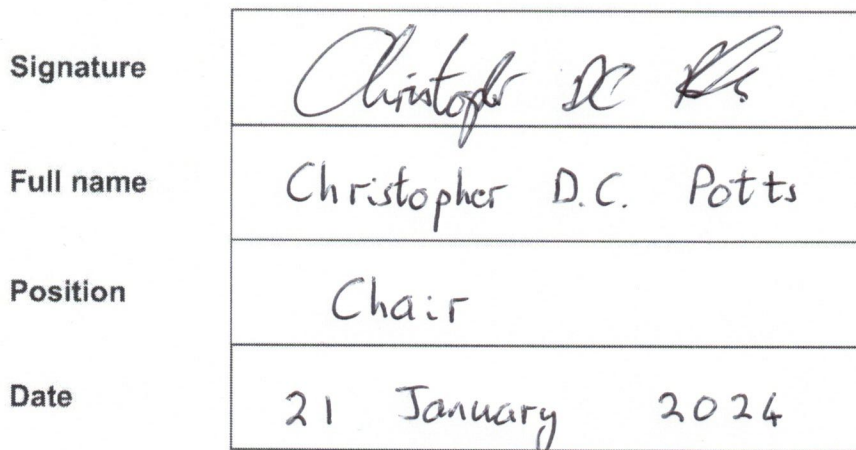 Signature Christopher DC Potts
Full name Christopher D.C. Potts
Position Chair
Date 21 January 2024